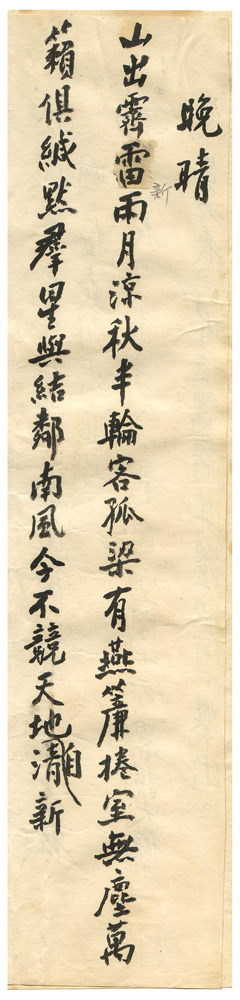 晚晴
山出霽雷雨月涼秋半輪客孤梁有燕簾捲室無塵萬
新
籟俱緘默羣星與結鄰南風今不競天地自清新